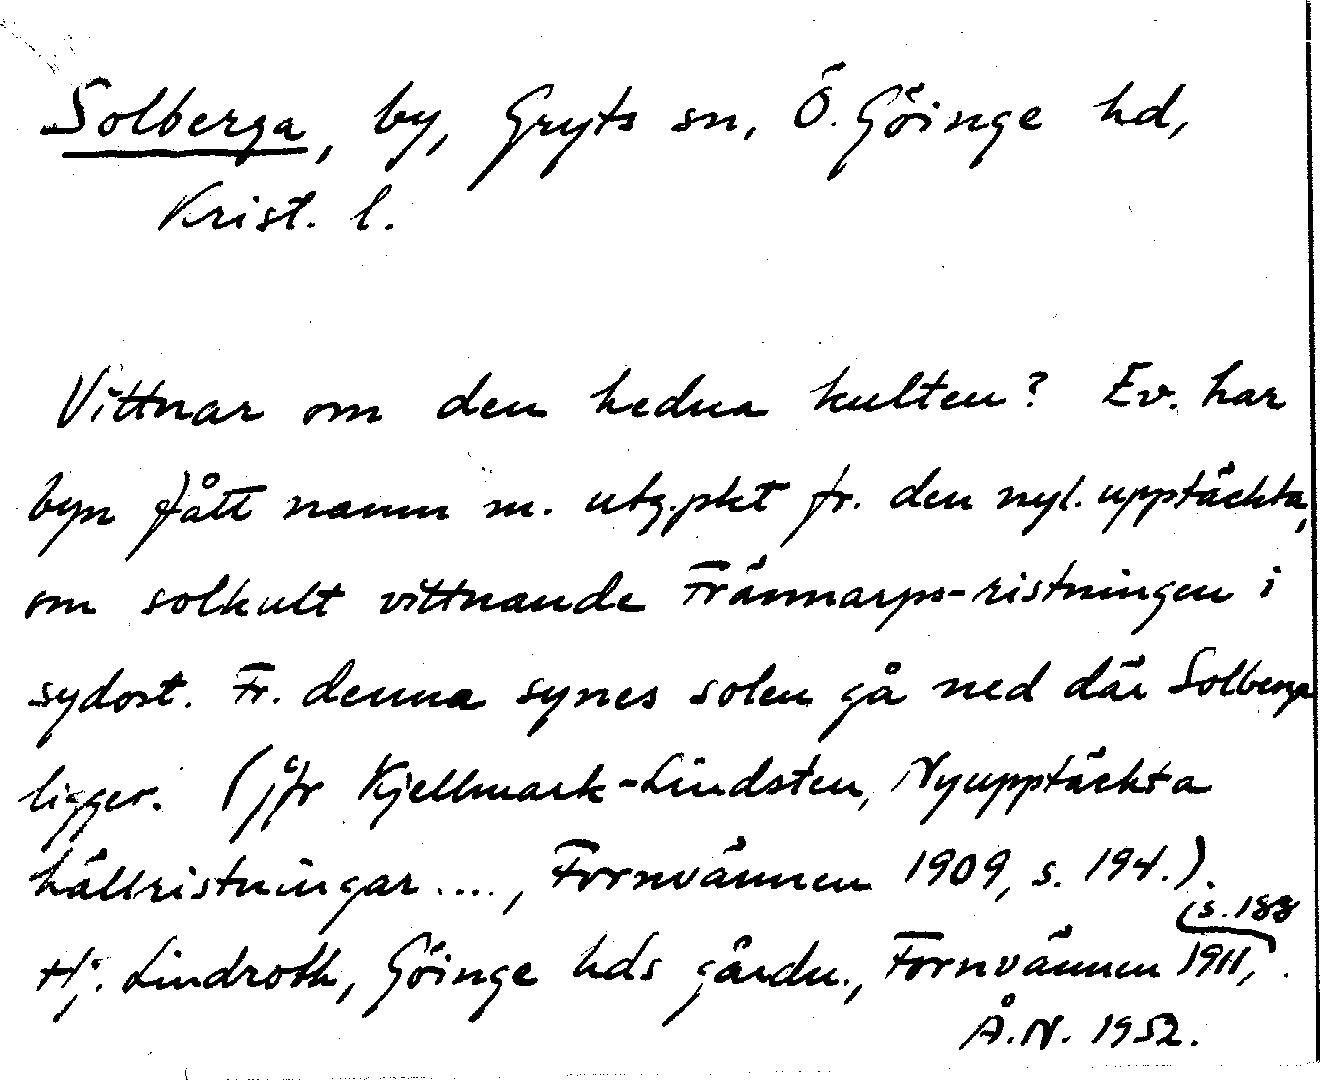 Solberga, by, Gryts sn, Ö. Göinge hd,
Krist. l.
Vittnar om den hedna kulten? Ev. har
byn fått namn m. utg.pkt fr. den nyl. upptäckta,
om solkult vittnande Frännarps-ristningen i
sydost. Fr. denna synes solen gå ned där Solberga
ligger. (jfr Kjellmark-Lindsten, Nyupptäckta
hällristningar...., Fornvännen 1909, s. 194.).
Hj. Lindroth, Göinge hds gårdn., Fornvännen 1911, s. 188.
Å.N. 1952.